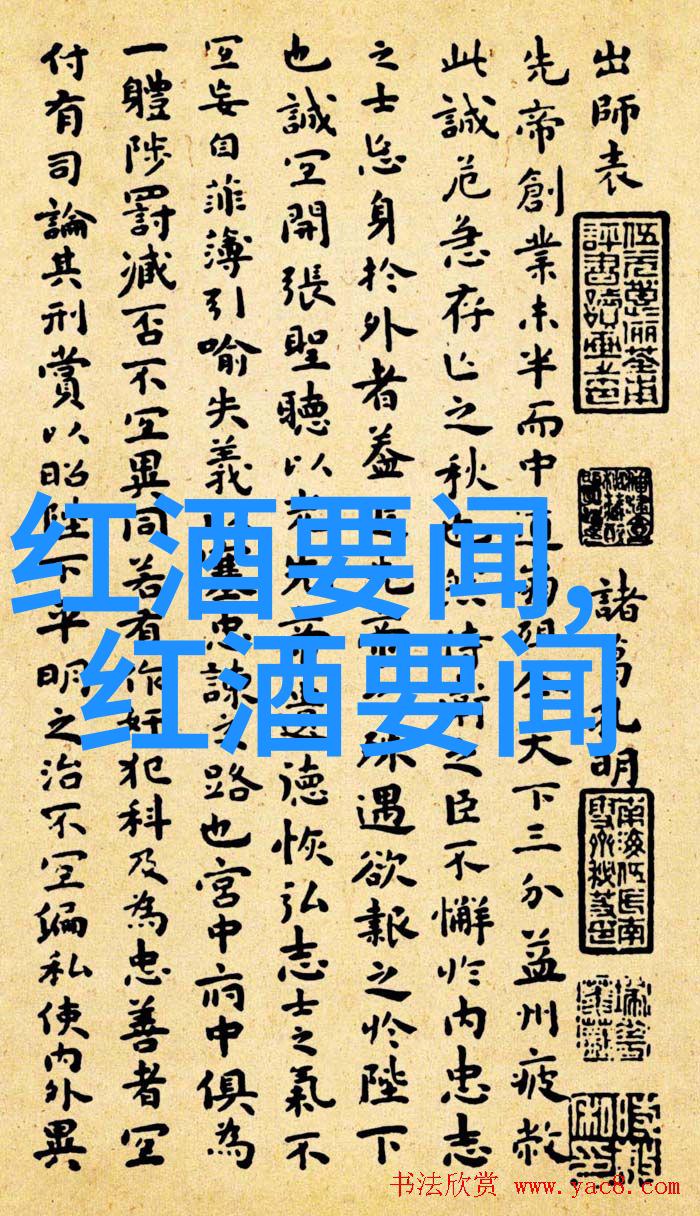 出師表
諸葛孔明
先帝創業未半而中道崩殂今天下三分益州疲敝
此誠危急存亡之秋也然侍衛之臣不懈於内忠志
之士忘身於外者蓋追先帝之殊遇欲報之於陛下
也誠宜開張聖聽以光先帝遺德恢弘志士之氣不
宜妄自菲薄引喻失義以塞忠諫之路也宮中府中俱為
一體陟罰臧否不宜異同若有作奸犯科及為忠善者宜
付有司論其刑賞以昭陛下平明之治不宜偏私使内外異
红酒要闻,
红酒要闻
书法欣赏 www.yac8.com